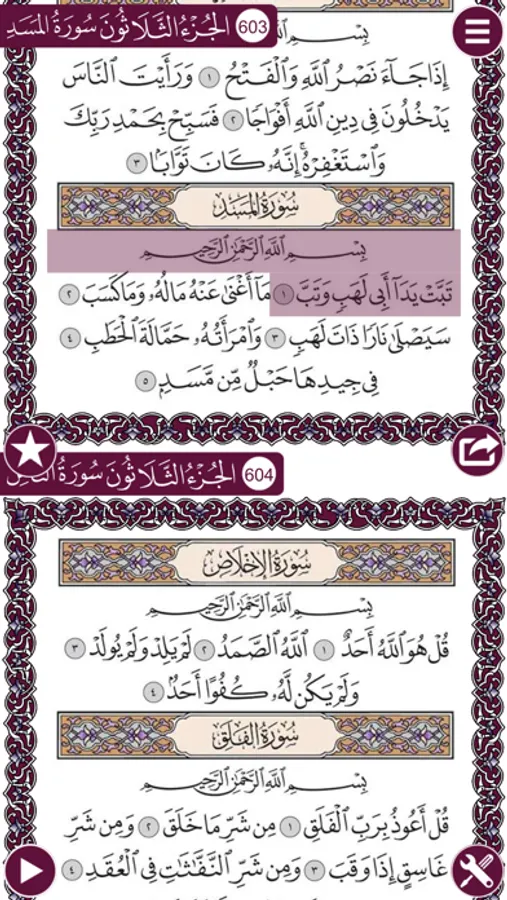 الجُزْءُ الثَّلَاثُونَ سُورَةُ المَسَدِ 603
بِسْمِ اللَّهِ
إِذَا جَاءَ نَصْرُ اللَّهِ وَالْفَتْحُ ١ وَرَأَيْتَ النَّاسَ
يَدْخُلُونَ فِي دِينِ اللَّهِ أَفْوَاجًا ٢ فَسَبِّحْ بِحَمْدِ رَبِّكَ
وَاسْتَغْفِرْهُ ۚ إِنَّهُ كَانَ تَوَّابًا ٣
سُورَةُ المَسَدِ
بِسْمِ اللَّهِ الرَّحْمَٰنِ الرَّحِيمِ
تَبَّتْ يَدَا أَبِي لَهَبٍ وَتَبَّ ١ مَا أَغْنَىٰ عَنْهُ مَالُهُ وَمَا كَسَبَ ٢
سَيَصْلَىٰ نَارًا ذَاتَ لَهَبٍ ٣ وَامْرَأَتُهُ حَمَّالَةَ الْحَطَبِ ٤
فِي جِيدِهَا حَبْلٌ مِّن مَّسَدٍ ٥
الجُزْءُ الثَّلَاثُونَ سُورَةُ 604
سُورَةُ الإِخْلَاصِ
بِسْمِ اللَّهِ الرَّحْمَٰنِ الرَّحِيمِ
قُلْ هُوَ اللَّهُ أَحَدٌ ١ اللَّهُ الصَّمَدُ ٢ لَمْ يَلِدْ وَلَمْ يُولَدْ ٣
وَلَمْ يَكُن لَّهُ كُفُوًا أَحَدٌ ٤
سُورَةُ الفَلَقِ
بِسْمِ اللَّهِ الرَّحْمَٰنِ الرَّحِيمِ
قُلْ أَعُوذُ بِرَبِّ الْفَلَقِ ١ مِن شَرِّ مَا خَلَقَ ٢ وَمِن شَرِّ
غَاسِقٍ إِذَا وَقَبَ ٣ وَمِن شَرِّ النَّفَّاثَاتِ فِي الْعُقَدِ ٤